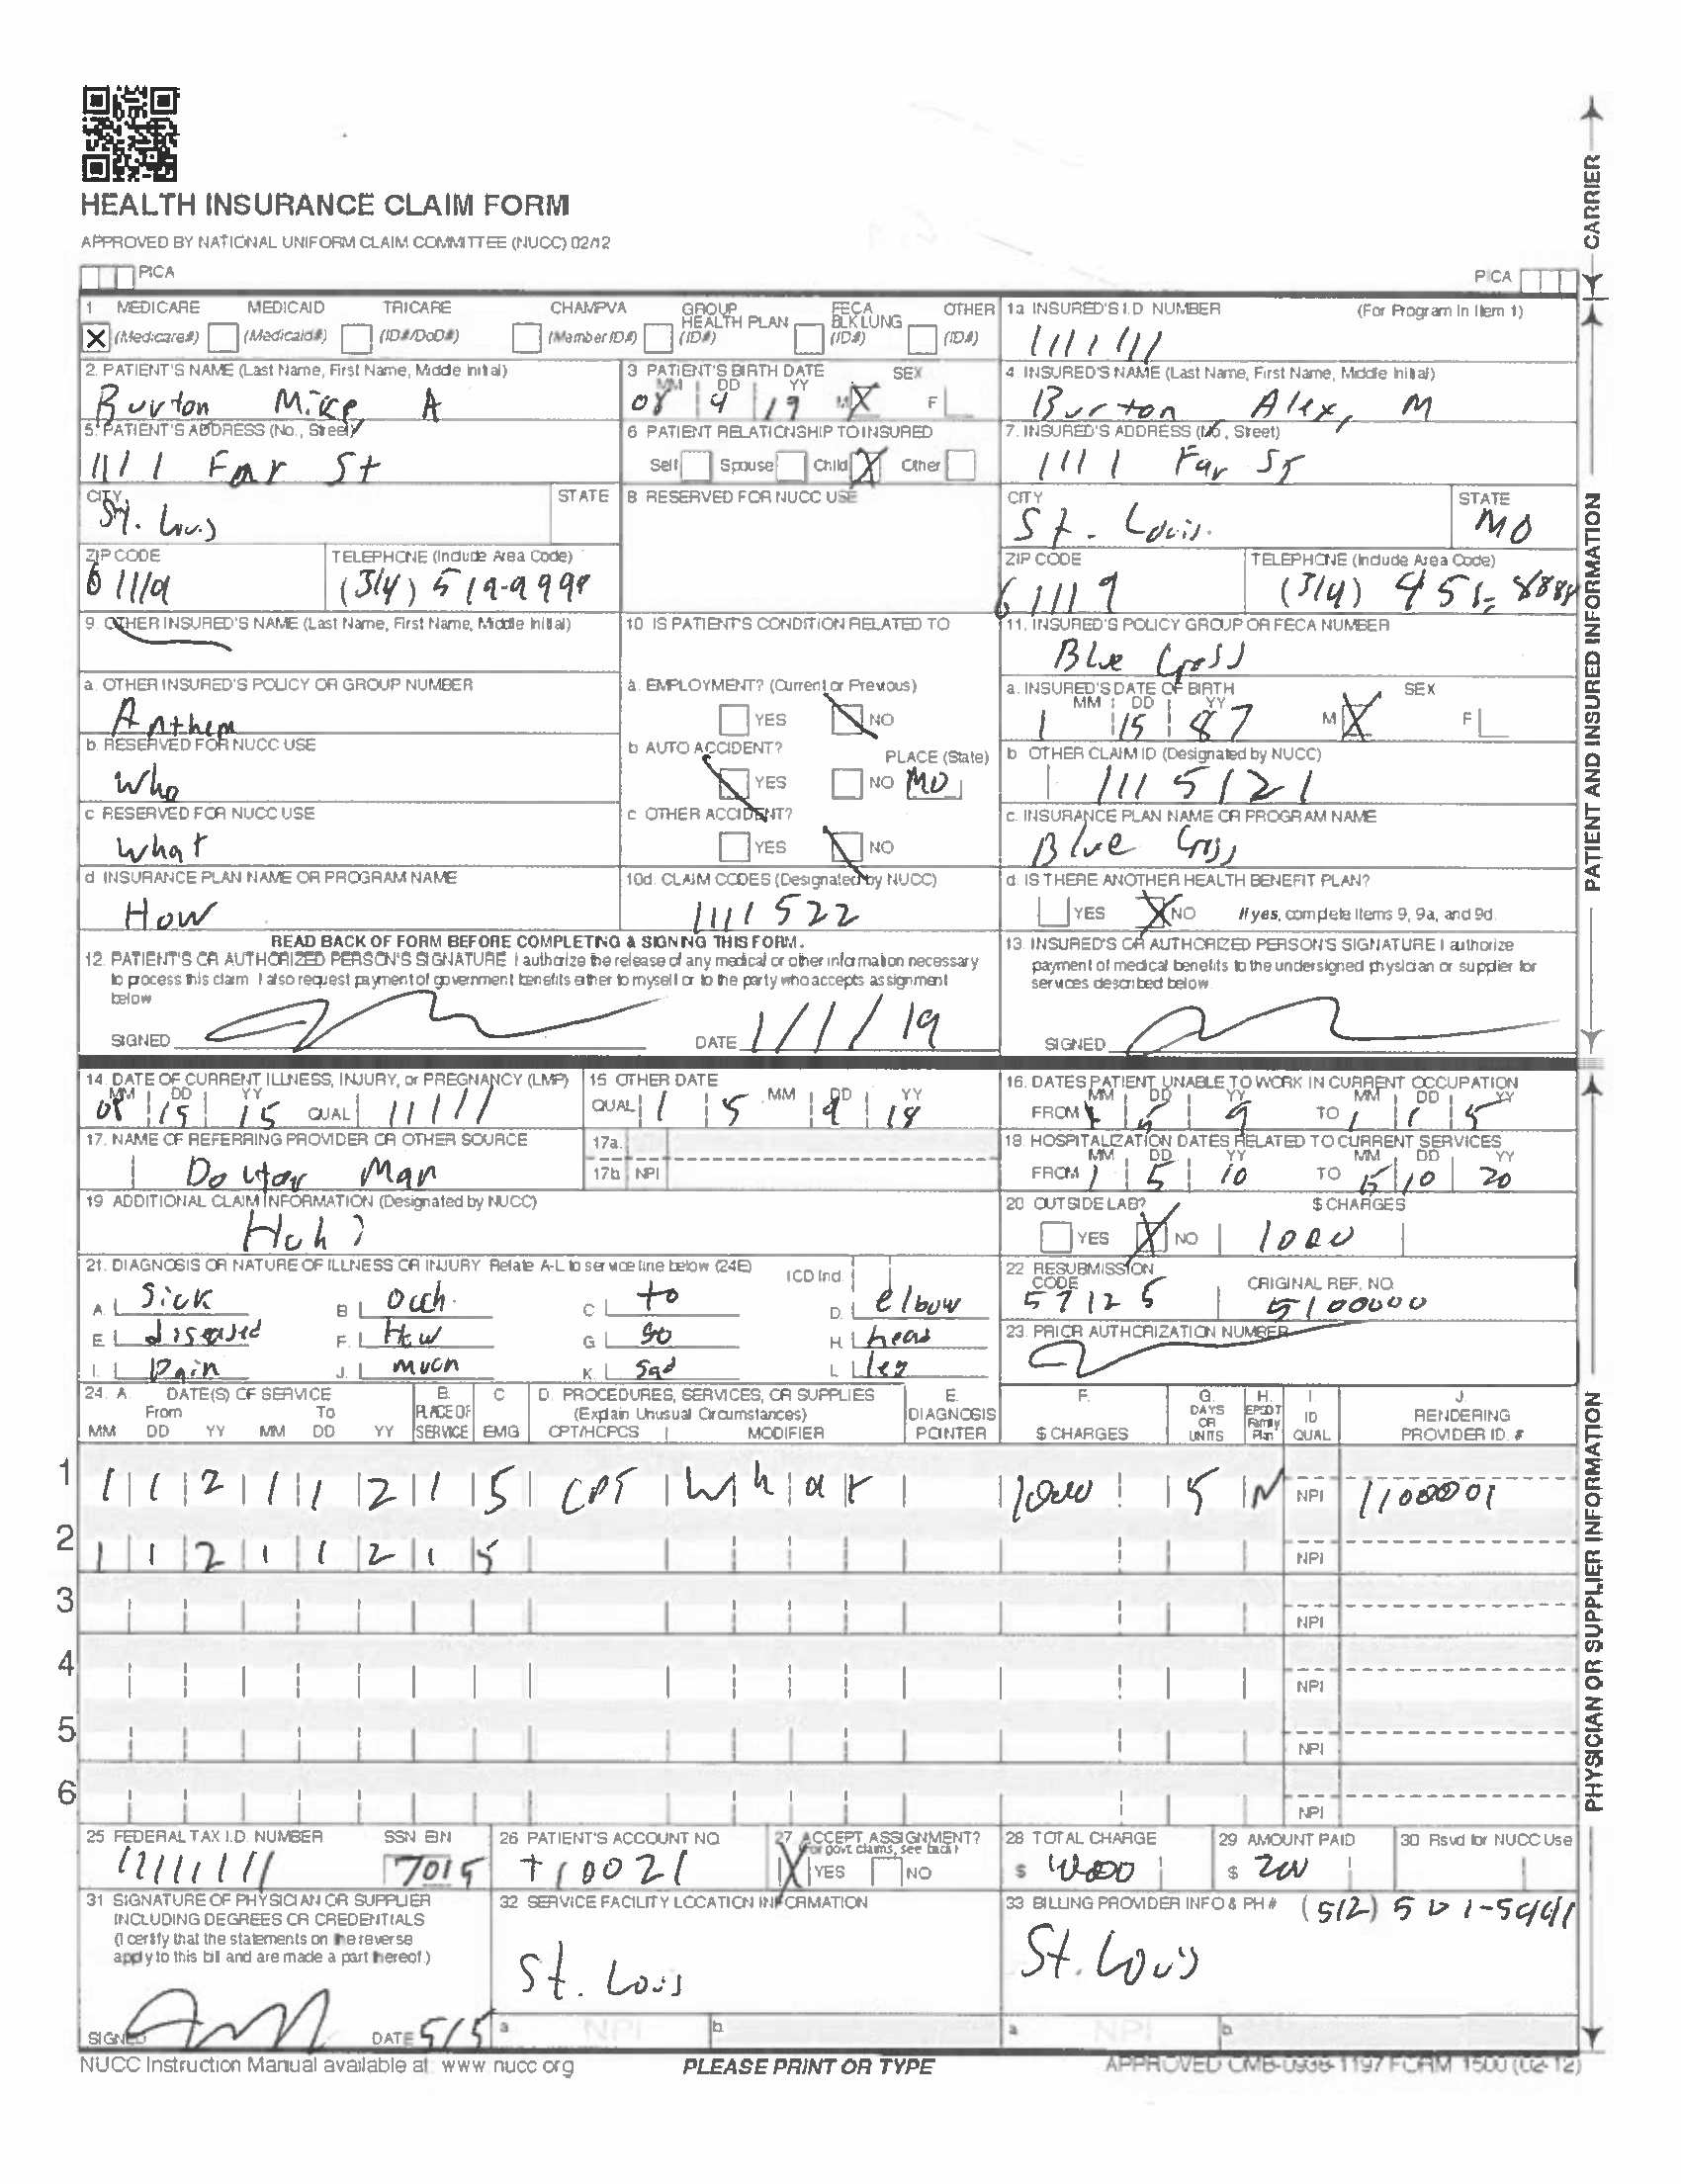 HEALTH INSURANCE CLAIM FORM
APPROVED BY NATIONAL UNIFORM CLAIM COMMITTEE (NUCC) 02/12
PICA
PICA
CARRIER
1 MEDICARE MEDICAID TRICARE CHAMPVA GROUP HEALTH PLAN FECA BLK LUNG OTHER
X (Medicare#) (Medicaid#) (ID#/DoD#) (Member ID#) (ID#) (ID#) (ID#)
1a INSURED'S I.D NUMBER (For Program In Item 1)
1111111
2. PATIENT'S NAME (Last Name, First Name, Middle Initial)
Burton Mike, A
3 PATIENT'S BIRTH DATE SEX
MM DD YY
08 9 19 M X F
4. INSURED'S NAME (Last Name, First Name, Middle Initial)
Burton, Alex, M
5. PATIENT'S ADDRESS (No., Street)
1111 Far St
6 PATIENT RELATIONSHIP TO INSURED
Self Spouse Child X Other
7. INSURED'S ADDRESS (No., Street)
1111 Far St
CITY STATE
St. Louis
8 RESERVED FOR NUCC USE
CITY STATE
St. Louis. MO
ZIP CODE TELEPHONE (Include Area Code)
61119 (314) 519-9999
ZIP CODE TELEPHONE (Include Area Code)
61119 (314) 451-8888
9. OTHER INSURED'S NAME (Last Name, First Name, Middle Initial)
10 IS PATIENT'S CONDITION RELATED TO
11. INSURED'S POLICY GROUP OR FECA NUMBER
Blue Cross
a. OTHER INSURED'S POLICY OR GROUP NUMBER
Anthem
a. EMPLOYMENT? (Current or Previous)
YES NO
a. INSURED'S DATE OF BIRTH SEX
MM DD YY
1 15 87 M X F
b. RESERVED FOR NUCC USE
Who
b AUTO ACCIDENT? PLACE (State)
YES NO MO
b OTHER CLAIM ID (Designated by NUCC)
1115121
c RESERVED FOR NUCC USE
What
c OTHER ACCIDENT?
YES NO
c. INSURANCE PLAN NAME OR PROGRAM NAME
Blue Cross
d INSURANCE PLAN NAME OR PROGRAM NAME
How
10d. CLAIM CODES (Designated by NUCC)
1111522
d. IS THERE ANOTHER HEALTH BENEFIT PLAN?
YES X NO If yes, complete Items 9, 9a, and 9d.
READ BACK OF FORM BEFORE COMPLETING & SIGNING THIS FORM.
12. PATIENT'S OR AUTHORIZED PERSON'S SIGNATURE I authorize the release of any medical or other information necessary
to process this claim I also request payment of government benefits either to myself or to the party who accepts assignment
below
SIGNED DATE 1/1/19
13. INSURED'S OR AUTHORIZED PERSON'S SIGNATURE I authorize
payment of medical benefits to the undersigned physician or supplier for
services described below
SIGNED
PATIENT AND INSURED INFORMATION
14. DATE OF CURRENT ILLNESS, INJURY, or PREGNANCY (LMP)
MM DD YY
08 15 15 QUAL 11111
15 OTHER DATE
QUAL 1 5 MM 9 DD 18 YY
16. DATES PATIENT UNABLE TO WORK IN CURRENT OCCUPATION
MM DD YY MM DD YY
FROM 5 9 TO 1 1 5
17. NAME OF REFERRING PROVIDER OR OTHER SOURCE
Doctor Man
17a.
17b NPI
18 HOSPITALIZATION DATES RELATED TO CURRENT SERVICES
MM DD YY MM DD YY
FROM 1 5 10 TO 15 10 20
19 ADDITIONAL CLAIM INFORMATION (Designated by NUCC)
Huh?
20 OUTSIDE LAB? $ CHARGES
YES X NO 1000
21. DIAGNOSIS OR NATURE OF ILLNESS OR INJURY Relate A-L to service line below (24E) ICD Ind.
A. Sick B. Ouch. C. to D. elbow
E. diseased F. How G. so H. head
I. Pain J. much K. sad L. leg
22 RESUBMISSION CODE ORIGINAL REF, NO.
57125 5100000
23. PRIOR AUTHORIZATION NUMBER
24. A DATE(S) OF SERVICE B. C D. PROCEDURES, SERVICES, OR SUPPLIES E. F. G. H. I. J.
From To PLACE OF (Explain Unusual Circumstances) DIAGNOSIS DAYS OR EPSDT Family ID RENDERING
MM DD YY MM DD YY SERVICE EMG CPT/HCPCS MODIFIER POINTER $ CHARGES UNITS Plan QUAL PROVIDER ID. #
1 1 1 2 1 1 2 1 5 CPT W h a t 1000 5 N NPI 1100001
2 1 1 2 1 1 2 1 5 NPI
3 NPI
4 NPI
5 NPI
6 NPI
25 FEDERAL TAX I.D. NUMBER SSN EIN
11111111 7015
26 PATIENT'S ACCOUNT NO
+10021
27 ACCEPT ASSIGNMENT?
(For govt. claims, see back)
X YES NO
28 TOTAL CHARGE
$
29 AMOUNT PAID
$ 200
30 Rsvd for NUCC Use
31 SIGNATURE OF PHYSICIAN OR SUPPLIER
INCLUDING DEGREES OR CREDENTIALS
(I certify that the statements on the reverse
apply to this bill and are made a part thereof.)
SIGNED DATE 5/5
32 SERVICE FACILITY LOCATION INFORMATION
St. Louis
a NPI b.
33 BILLING PROVIDER INFO & PH # (512) 501-5441
St. Louis
a NPI b.
PHYSICIAN OR SUPPLIER INFORMATION
NUCC Instruction Manual available at: www nucc org
PLEASE PRINT OR TYPE
APPROVED OMB-0938-1197 FORM 1500 (02-12)